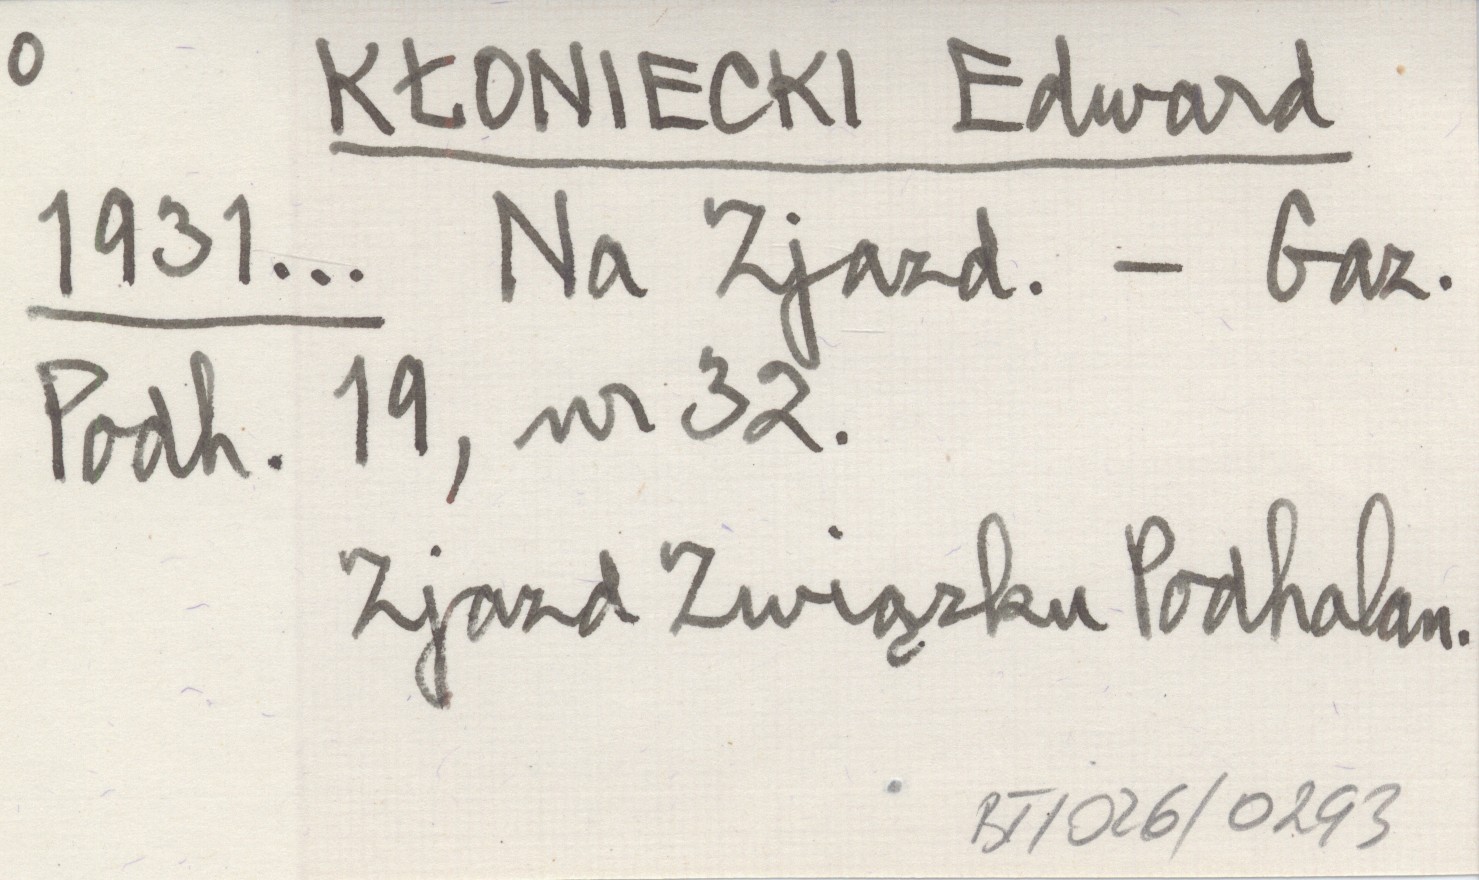 0 KŁONIECKI Edward
1931... Na Zjazd. – Gaz.
Podh. 19, nr 32.
Zjazd Związku Podhalan.
BT/026/0293